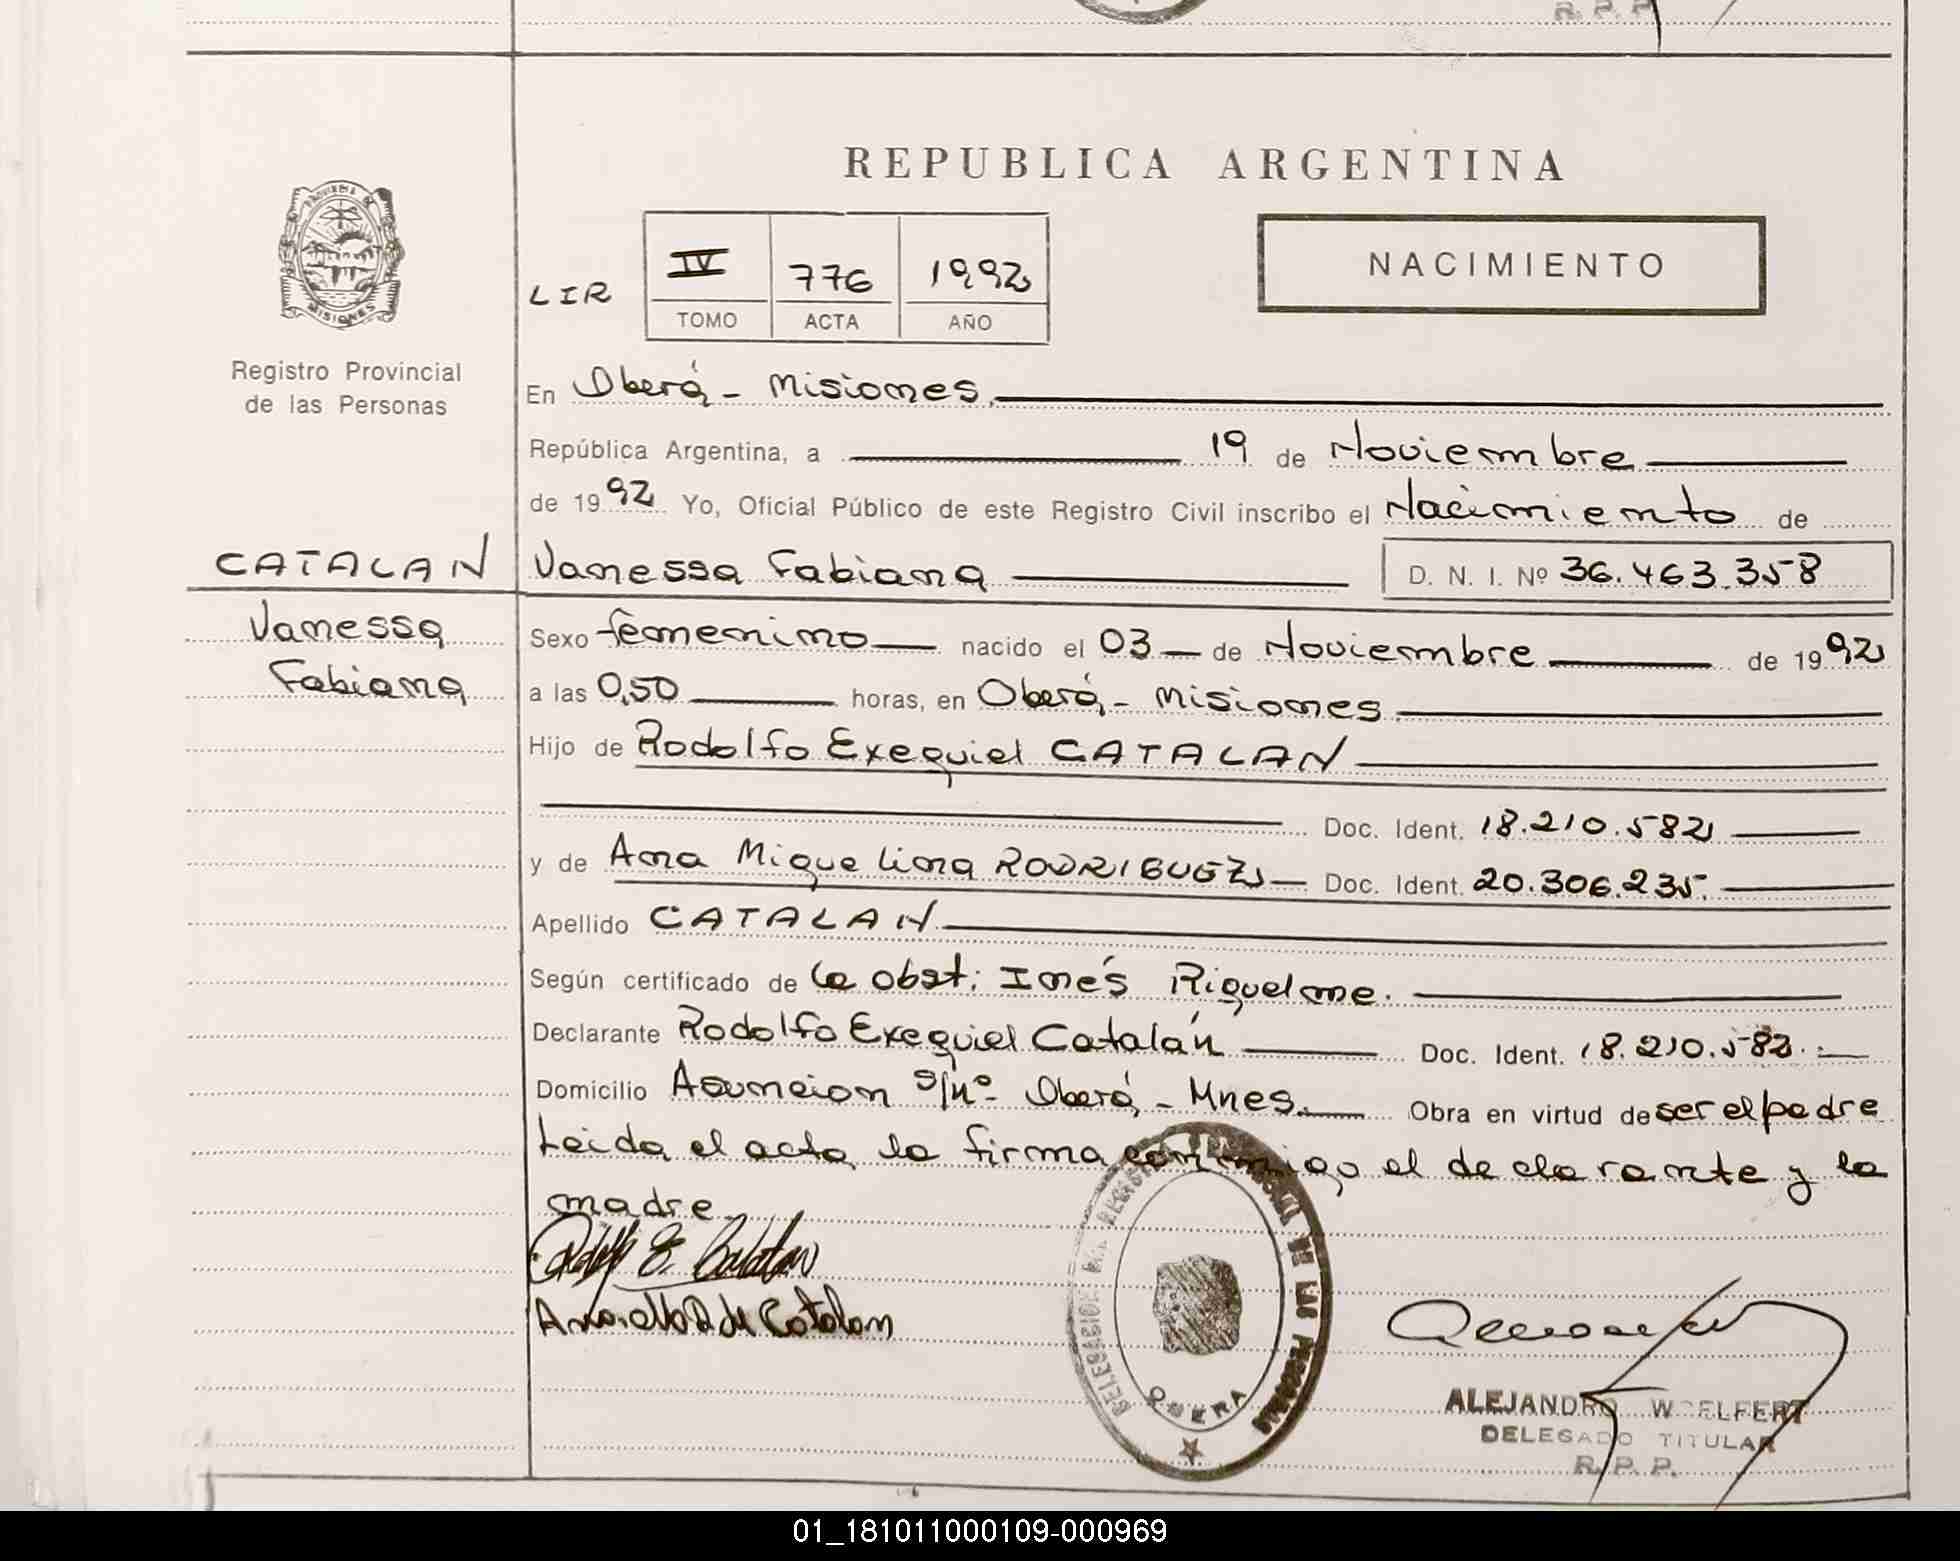 R. P. P.
REPUBLICA ARGENTINA
PROVINCIA DE
MISIONES
LIR
IV 776 1992
TOMO ACTA AÑO
NACIMIENTO
Registro Provincial
de las Personas
En Oberá - Misiones.
República Argentina, a 19 de Noviembre
de 1992 Yo, Oficial Público de este Registro Civil inscribo el Nacimiento de
CATALAN
Vanessa Fabiana D. N. I. Nº 36.463.358
Vanessa
Fabiana
Sexo femenino nacido el 03 de Noviembre de 1992
a las 0,50 horas, en Oberá - Misiones.
Hijo de Rodolfo Exequiel CATALAN
Doc. Ident. 18.210.582
y de Ana Miquelina RODRIGUEZ Doc. Ident. 20.306.235.
Apellido CATALAN
Según certificado de la obst: Inés Riquelme.
Declarante Rodolfo Exequiel Catalán Doc. Ident. 18.210.582.
Domicilio Asuncion s/nº Oberá - Mnes. Obra en virtud de ser el padre
Leida el acta la firma conmigo el declarante y la
madre
DELEGACION DEL REGISTRO PROVINCIAL DE LAS PERSONAS
OBERA
de Catalan
ALEJANDRO WOELFERT
DELEGADO TITULAR
R. P. P.
01_181011000109-000969